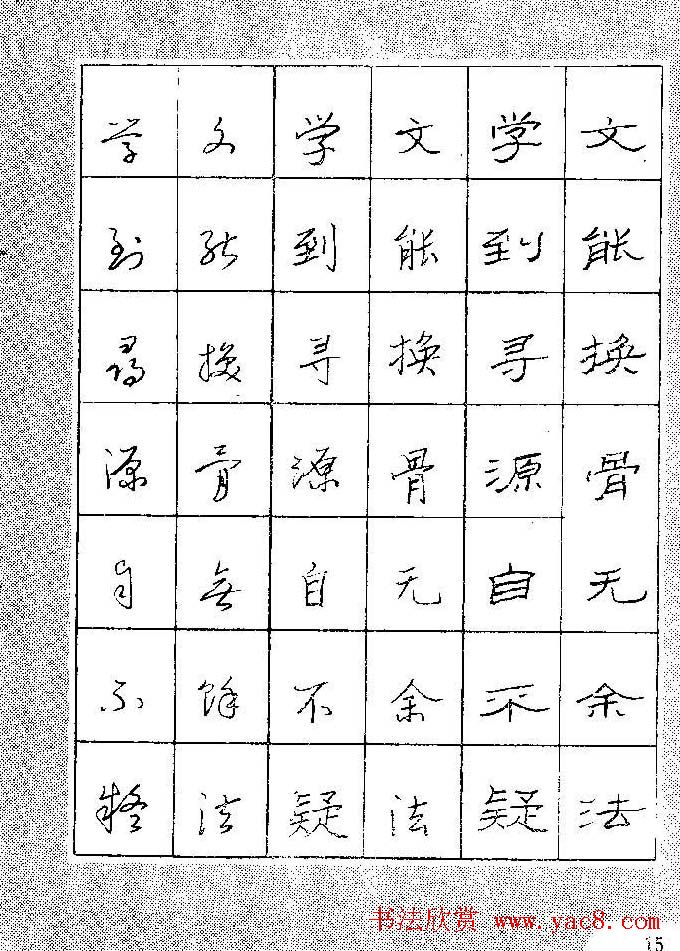 文能换骨无余法
学到寻源自不疑
文能换骨无余法
学到寻源自不疑
文能換骨無餘法
学到尋源自不疑
书法欣赏 www.yac8.com
15